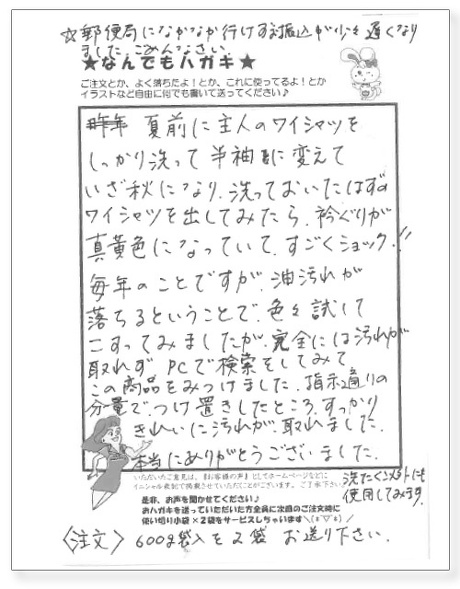 ☆郵便局になかなか行けず振込が少々遅くなり
ました。ごめんなさい。
★なんでもハガキ★
ご注文とか、よく落ちたよ!とか、これに使ってるよ!とか
イラストなど自由に何でも書いて送ってください♪
昨年 夏前に主人のワイシャツを
しっかり洗って半袖に変えて
いざ秋になり、洗っておいたはずの
ワイシャツを出してみたら、衿ぐりが
真黄色になっていて、すごくショック!!
毎年のことですが、油汚れが
落ちるということで、色々試して
こすってみましたが、完全には汚れが
取れず PCで検索をしてみて
この商品をみつけました。指示通りの
分量でつけ置きしたところ、すっかり
きれーいに汚れが、取れました。
本当にありがとうございました。
いただいたご意見は、『お客様の声』としてホームページなどに
イニシャル表記で掲載させていただくことがございます。ご了承下さい。
洗たくソメトにも
使用してみます。
是非、お声を聞かせてください♪
おハガキを送っていただいた方全員に次回のご注文時に
使い切り小袋×2袋をサービスしちゃいます＼(≧▽≦)/
〈注文〉 600g袋入を2袋 お送り下さい。